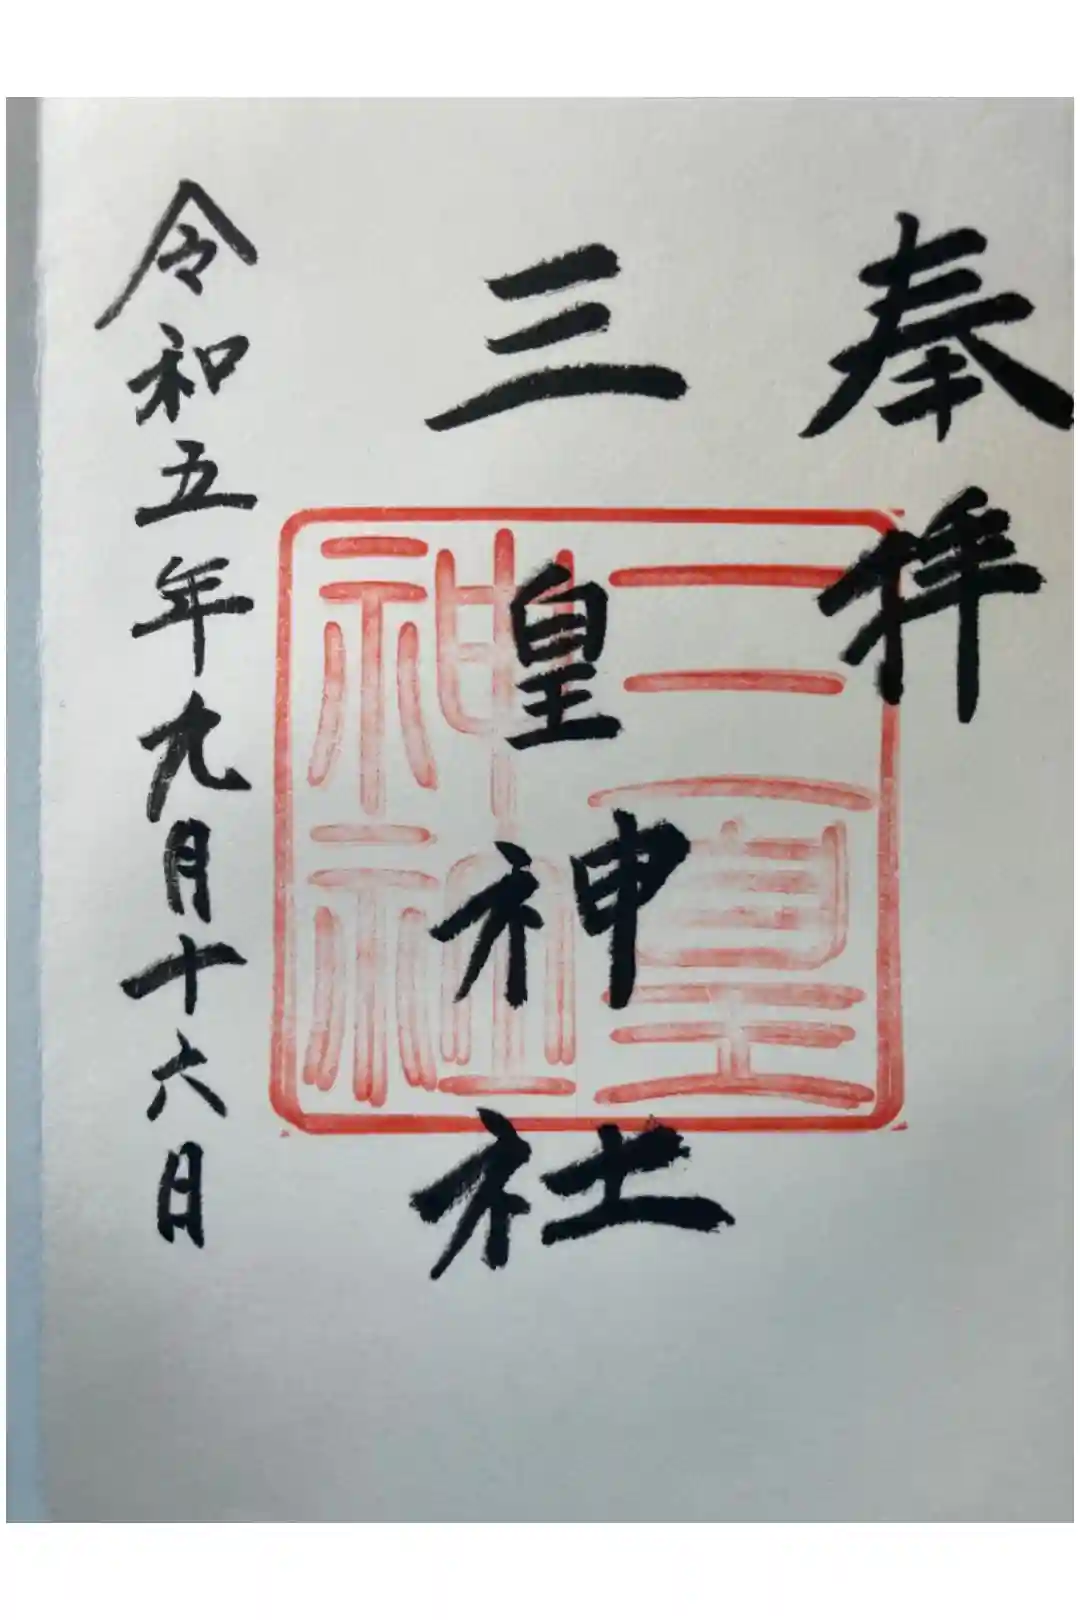 奉拝
三皇神社
三皇神社
令和五年九月十六日